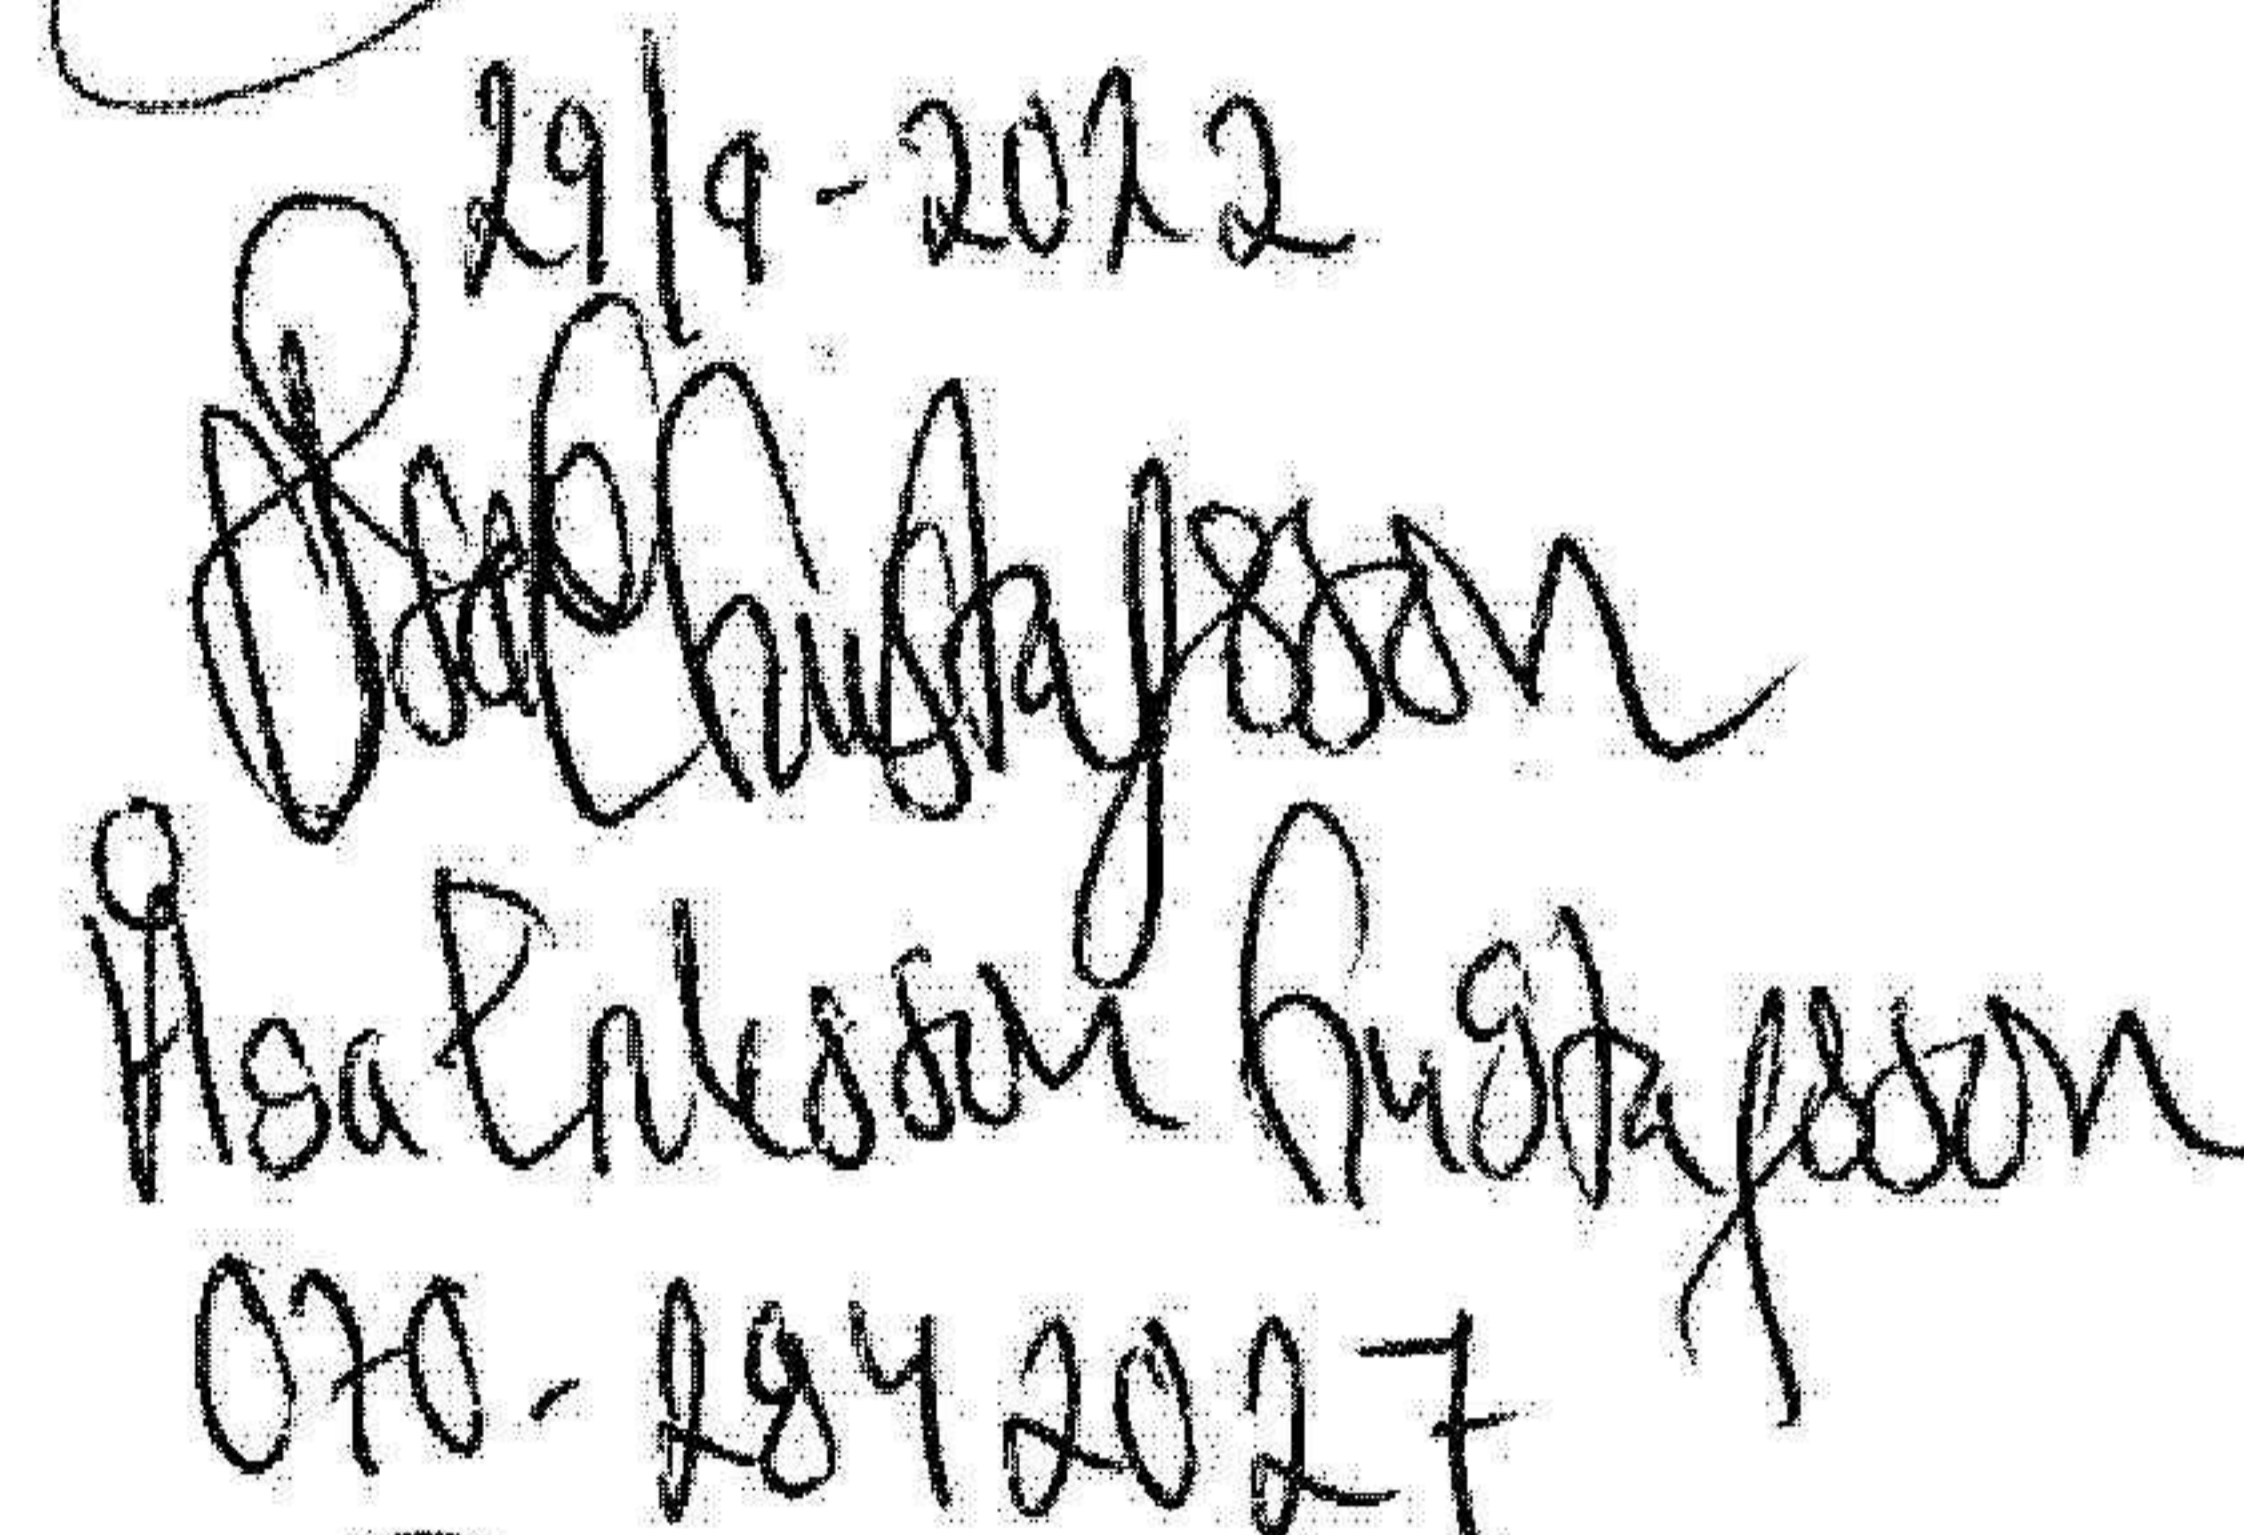 29/9-2022
Åsa E Gustafsson
Åsa Eriksson Gustafsson
070-284 20 27